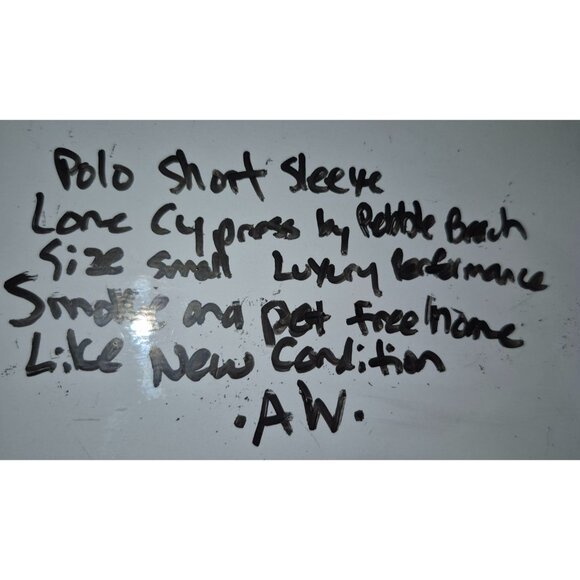 Polo Short Sleeve
Lone Cypress by Pebble Beach
Size Small Luxury Performance
Smoke and pet free home
Like New Condition
.AW.